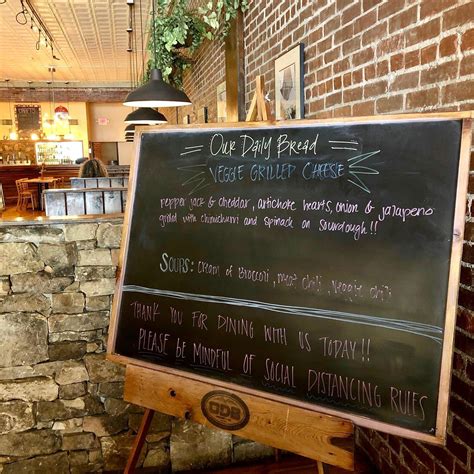 Our Daily Bread
Veggie Grilled Cheese
pepper jack & cheddar, artichoke hearts, onion & jalapeno
grilled with chimichurri and spinach on sourdough!!
Soups: cream of broccoli, meat chili, veggie chili
Thank you for dining with us today!!
Please be mindful of social distancing rules
ODB